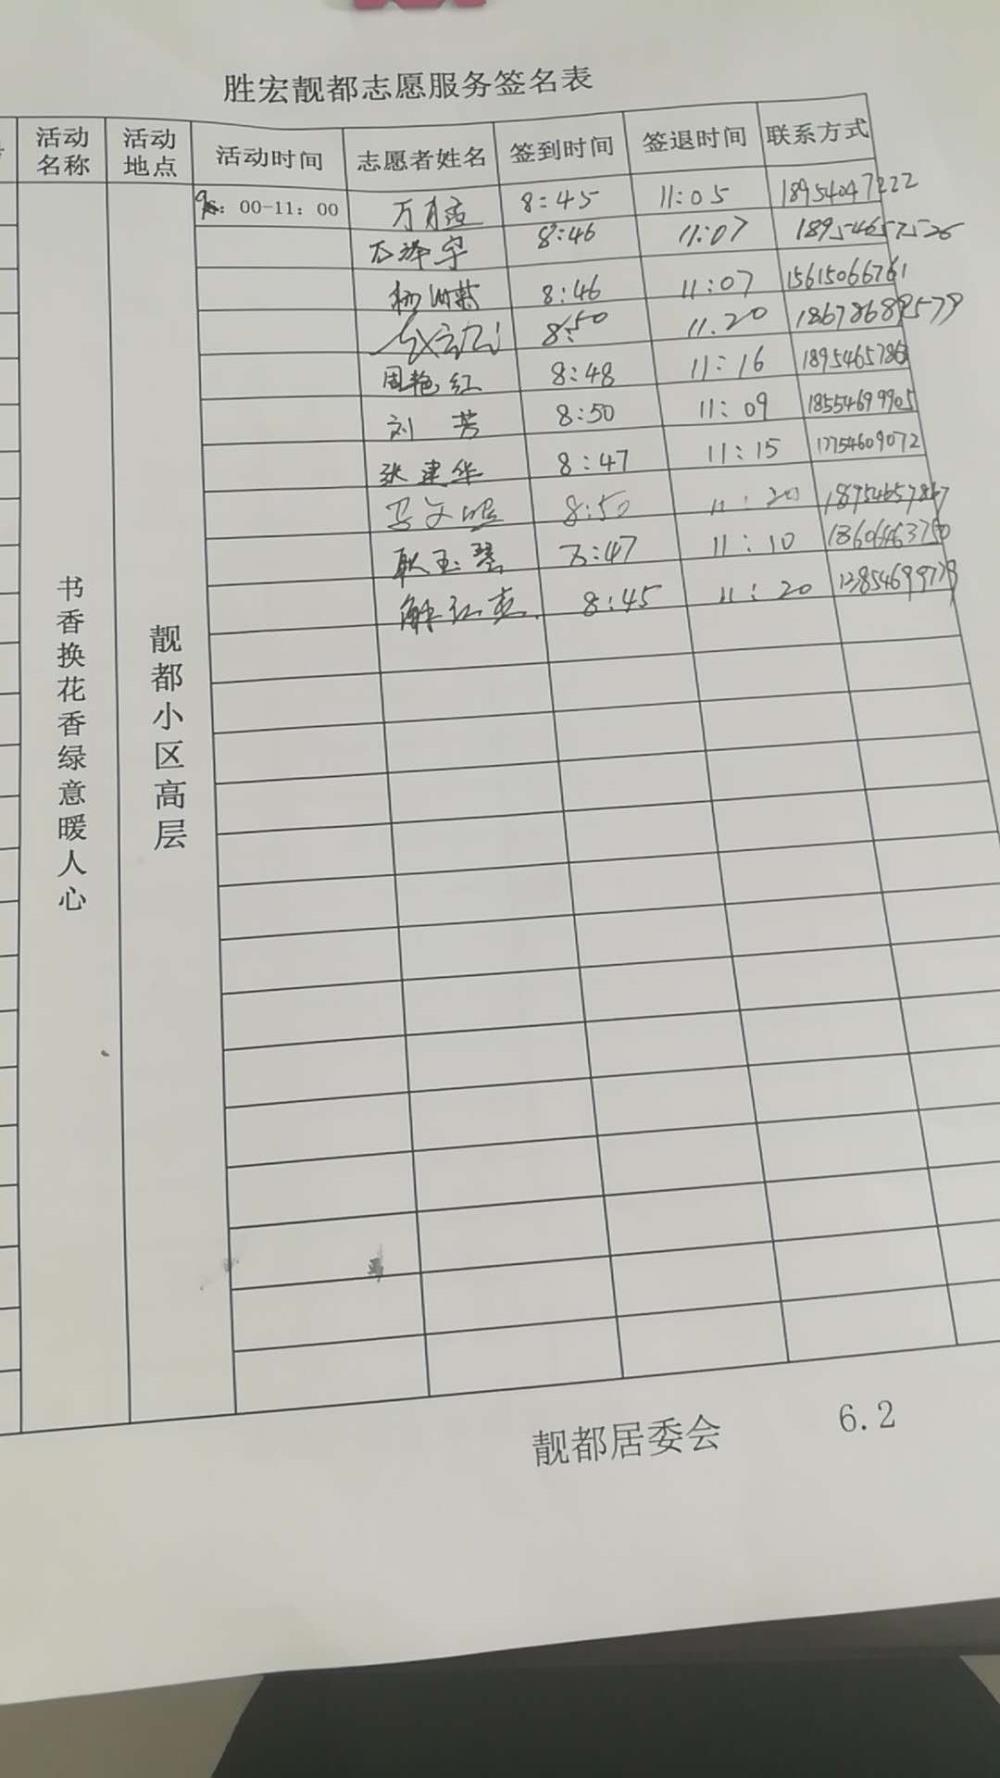 胜宏靓都志愿服务签名表
活动名称 活动地点 活动时间 志愿者姓名 签到时间 签退时间 联系方式
书香换花香绿意暖人心
靓都小区高层
9:00-11:00 8:45 11:05 18954047222
8:46 11:07 18954657526
8:46 11:07 15615066761
8:50 11.20 18678689579
周艳红 8:48 11:16
刘芳 8:50 11:09 18554699905
张建华 8:47 11:15 17754609072
马文 8:50 11:20
耿玉琴 8:47 11:10 18606463750
解红 8:45 11:20
靓都居委会 6.2